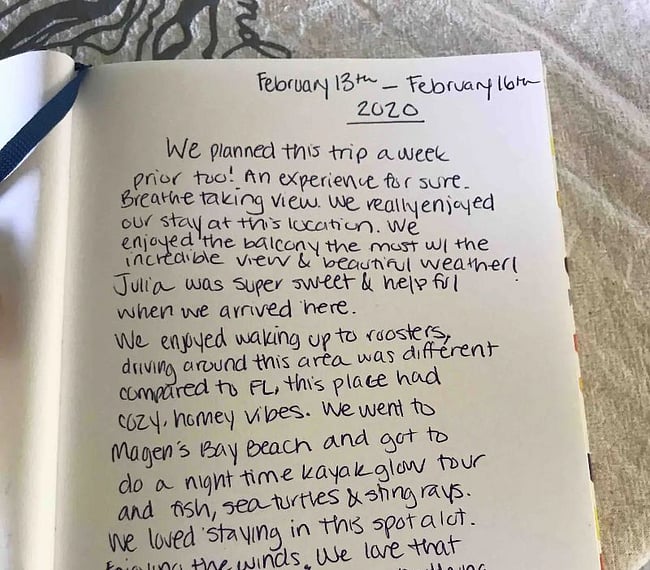 February 13th – February 16th
2020
We planned this trip a week
prior too! An experience for sure.
Breathe taking view. We really enjoyed
our stay at this location. We
enjoyed the balcony the most w/ the
incredible view & beautiful weather!
Julia was super sweet & helpful
when we arrived here.
We enjoyed waking up to roosters,
driving around this area was different
compared to FL, this place had
cozy, homey vibes. We went to
Magen's Bay Beach and got to
do a night time kayak glow tour
and fish, sea turtles & sting rays.
We loved staying in this spot a lot.
the winds. We love that